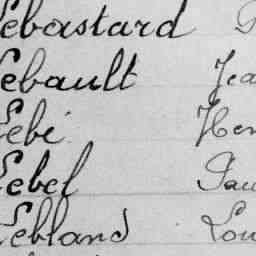 Lebastard
Lebault Jea
Lebi Hen
Lebel Pau
Lebland Lou